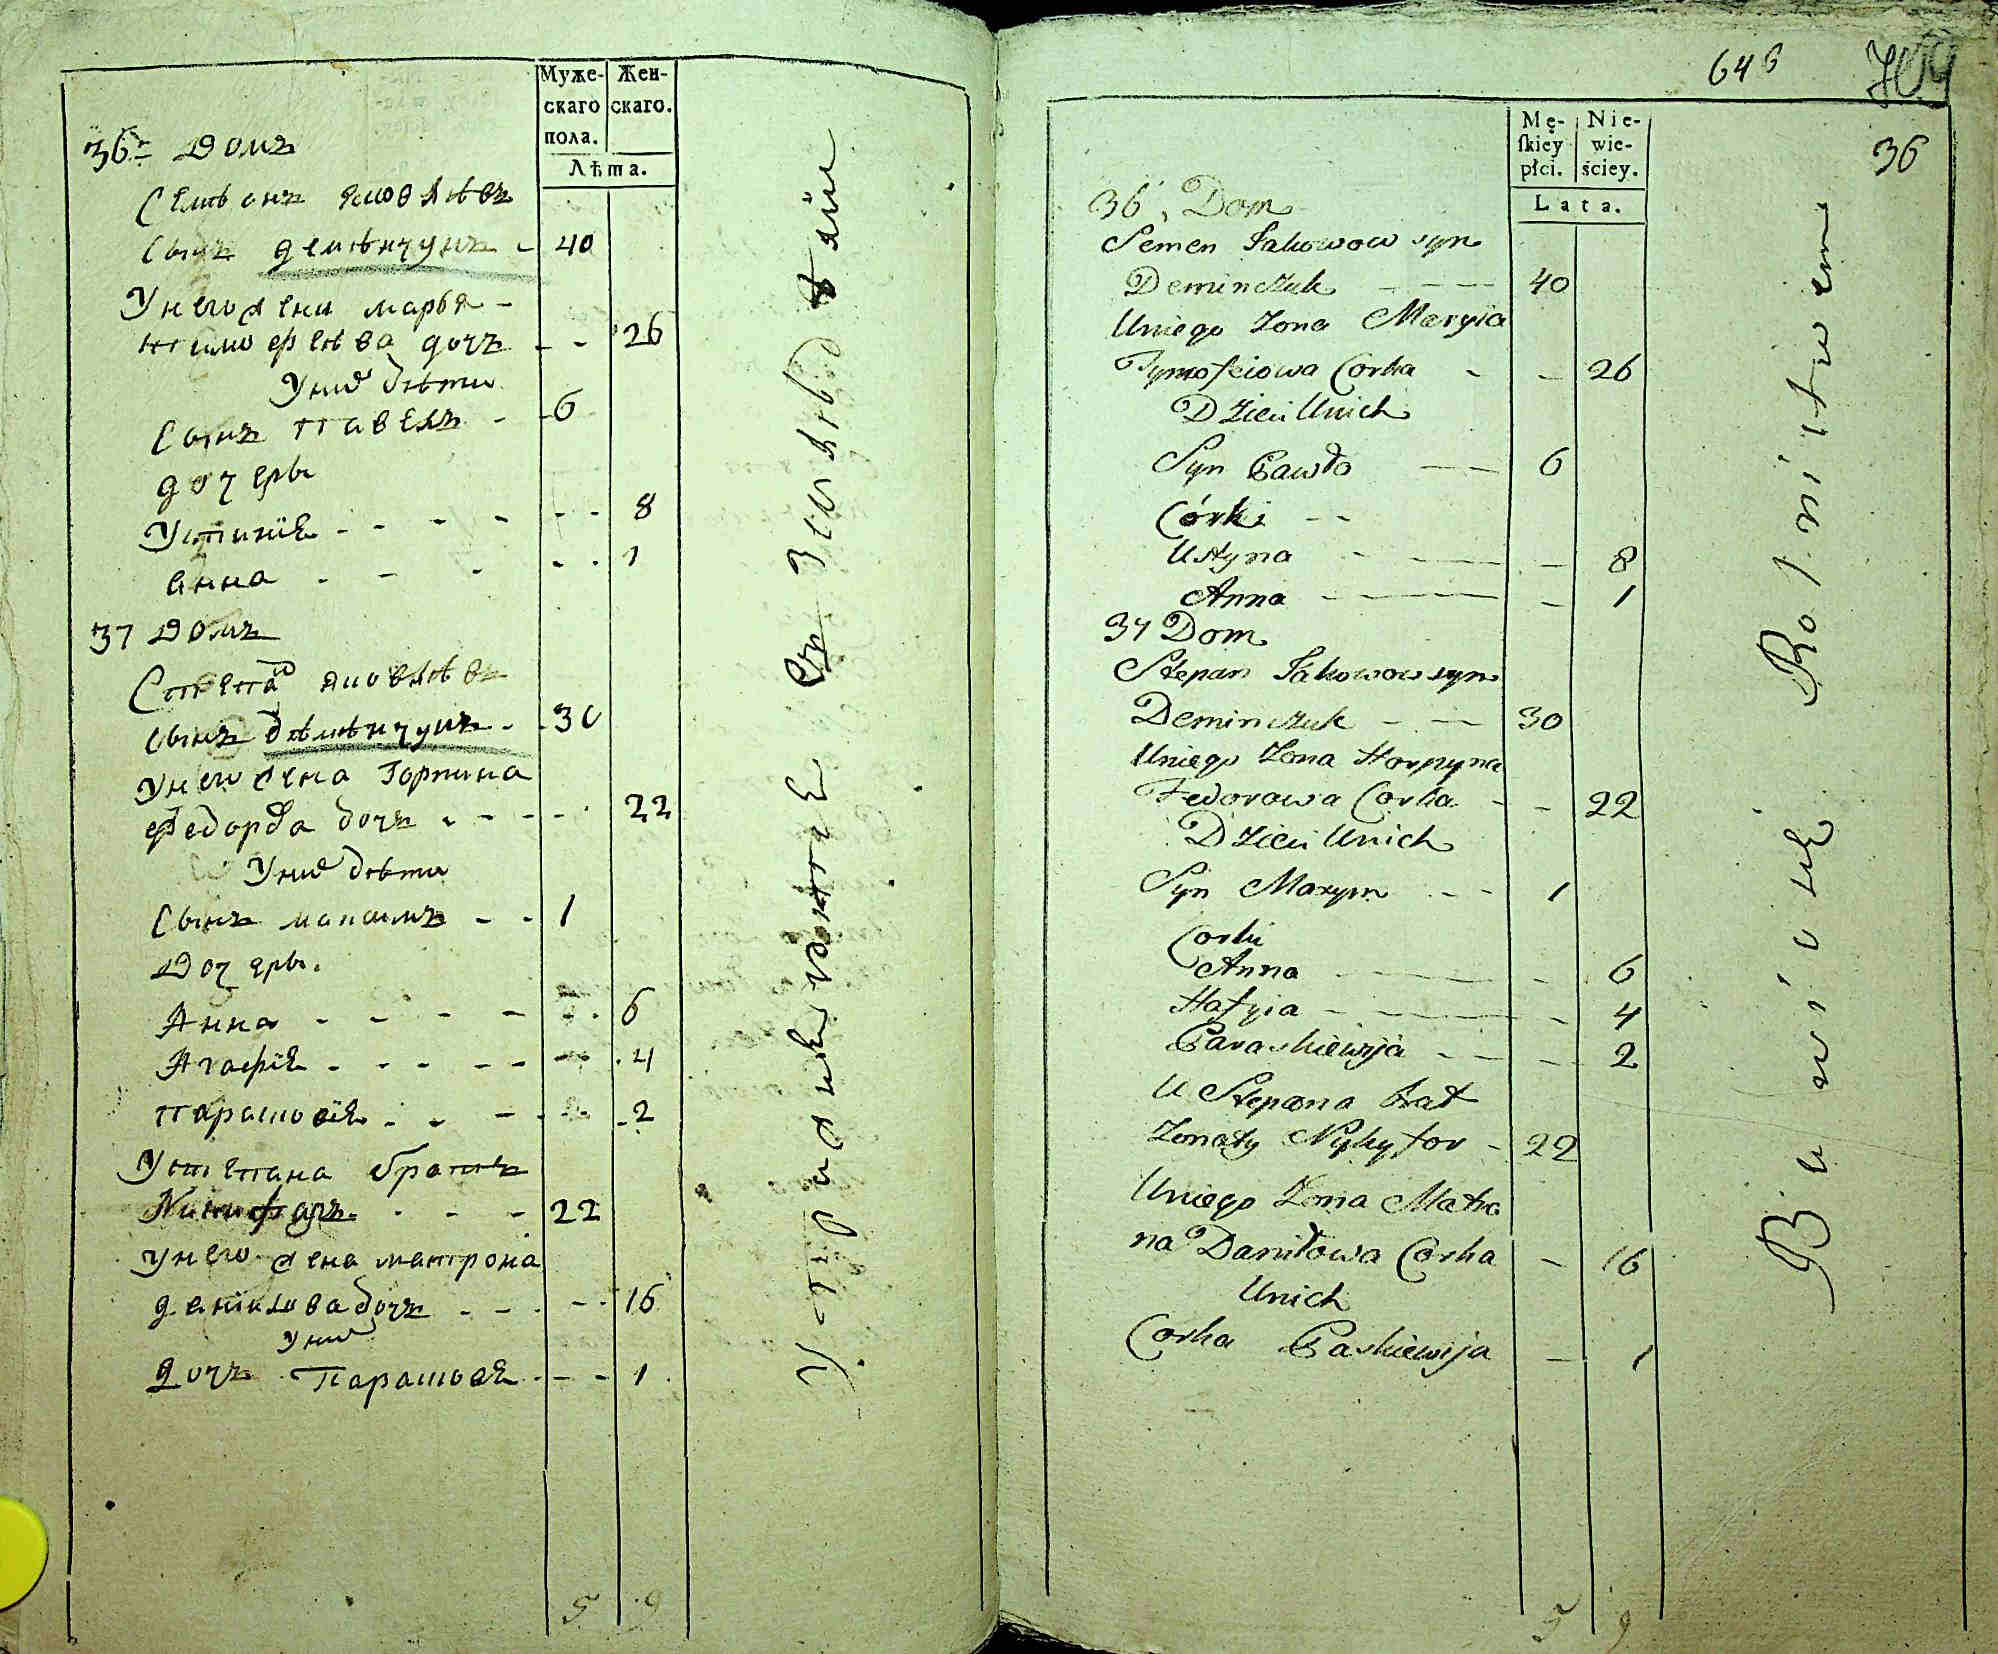 Муже-
скаго
пола.
Жен-
скаго.
Лѣта.
36й Домъ
Семѣонъ Яковлѣвъ
Сынъ демѣнчукъ - 40
У него жена марья -
тимофѣѣва дочъ - - 26
У нихъ дѣти
Сынъ павелъ - - 6
дочеры
Устинїя - - - - - - 8
анна - - - - - 1
37 Домъ
Степанъ яковлѣвъ
сынъ дѣмѣнчукъ - - 30
У него жена Горпина
федорова дочъ - - - - - 22
У нихъ дѣти
Сынъ максимъ - - 1
Дочеры.
Анна - - - - - - 6
Агафїя - - - - - - 4
парасковїя - - - - - 2
У степана братъ
Никифоръ - - - 22
У него жена матрона
данилова дочъ - - - - - 16
У нихъ
дочъ Парасковя - - - 1
5 9
646
36
Mę-
skiey
płci.
Nie-
wie-
ściey.
Lata.
36, Dom
Semen Jakowow syn
Deminczuk - - - - 40
Uniego Zona Maryia
Tymofeiowa Corka - - 26
Dzieci Unich
Syn Pawło - - 6
Córki - -
Ustyna - - - - 8
Anna - - - - 1
37 Dom
Stepan Jakowow syn
Deminczuk - - - 30
Uniego Zona Horpyna
Fedorowa Corka - - 22
Dzieci Unich
Syn Maxym - - - 1
Corki
Anna - - - - 6
Hafyia - - - - 4
Paraskiewija - - - - 2
U Stepana brat
Zonaty Nykyfor - 22
Uniego Zona Matro
na Daniłowa Corka - 16
Unich
Corka Paskiewija - 1
5 9